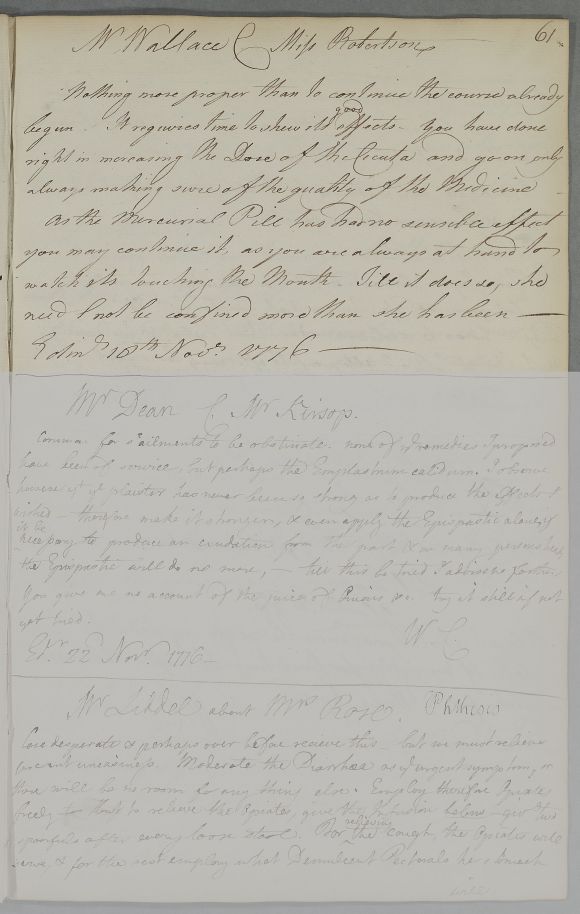 61.
Mr Wallace C Miss Robertson
Nothing more proper than to continue the course already
begun. It requires time to shew its good effects. You have done
right in increasing the Dose of the Cicuta and go on only
always making sure of the quality of the Medicine
As the Mercurial Pill has had no sensible effect
you may continue it, as you are always at hand to
watch its touching the Mouth. Till it does so, she
need not be confined more than she has been —
Edinr 18th Novr 1776 —
Mr Dean C. Mr Kirsop.
Common for ailments to be obstinate. none of remedies I proposed
have been of service, but perhaps the Emplastrum calidum. I observe
however yt ye plaister has never been so strong as to produce the effects I
wished — therefore make it stronger, & even apply the Epispastic alone if
it be
necessary to produce an exudation from the part & in many persons
the Epispastic will do no more, — till this be tried I advise no farther
You give me no account of the juice of &c. try it still if not
yet tried.
W. C.
Edr. 22d Novr. 1776 —
Mr Liddel about Mrs Rose. Phthisis
Case desperate & perhaps over before receive this — but we must relieve
present uneasiness. Moderate the Diarrhœa as urgent symptom, or
there will be no room for any thing else. Employ therefore Opiates
freely but to relieve the Opiates, give the Infusion below — give two
spoonfuls after every loose stool. For relieving the cough, the Opiates will
serve, & for the rest employ what Demulcent Pectorals her stomach
will